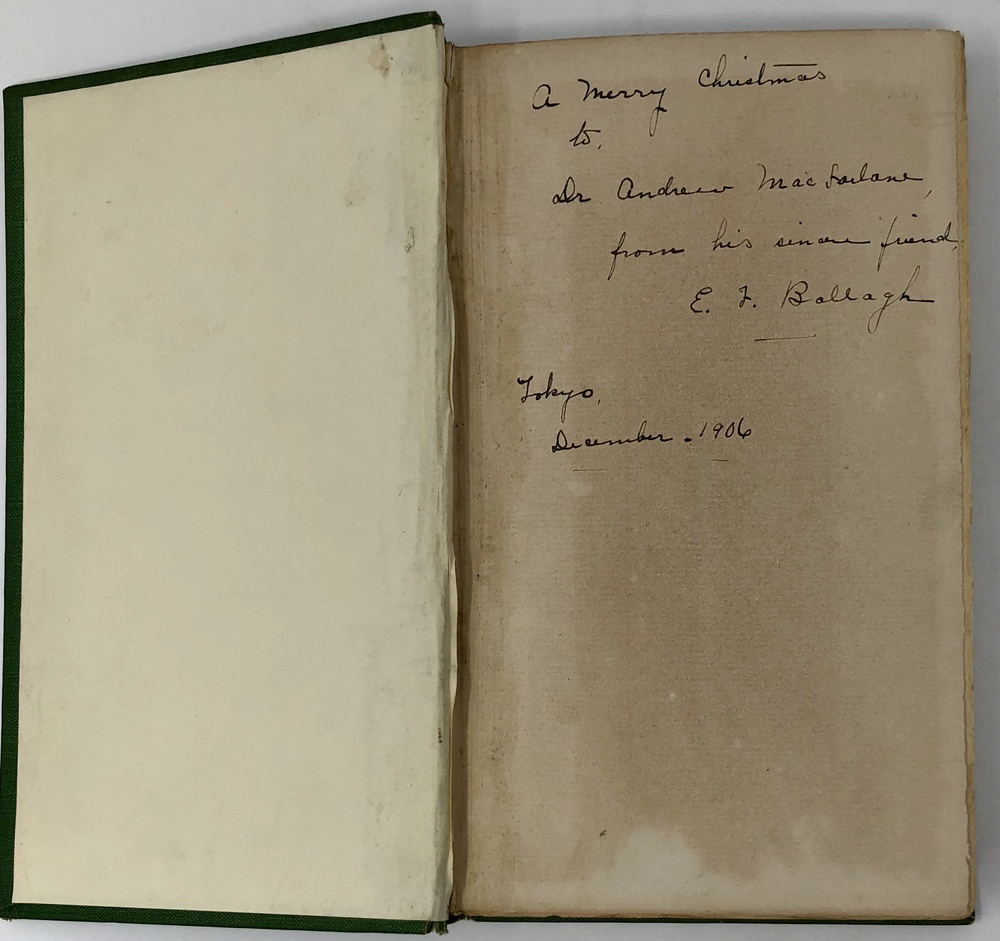 A Merry Christmas
to,
Dr Andrew MacFarlane,
from his sincere friend,
E. F. Ballagh
Tokyo,
December. 1906